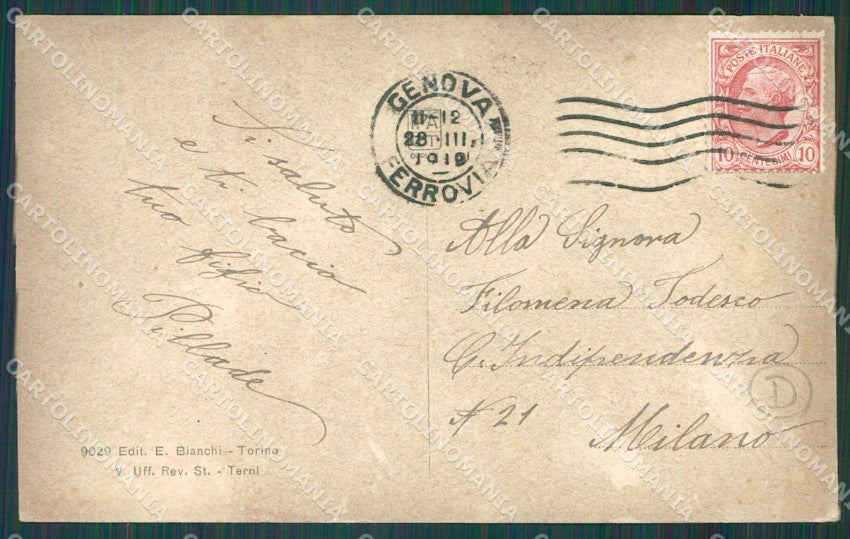 Ti saluto
e ti bacio
tuo figio
Pillade
9029 Edit. E. Bianchi - Torino
V. Uff. Rev. St. - Terni
GENOVA
11-12
28 III
1919
FERROVIA
POSTE ITALIANE
10 CENTESIMI 10
Alla Signora
Filomena Todesco
C. Indipendenza
N 21
Milano
D
CARTOLINOMANIA